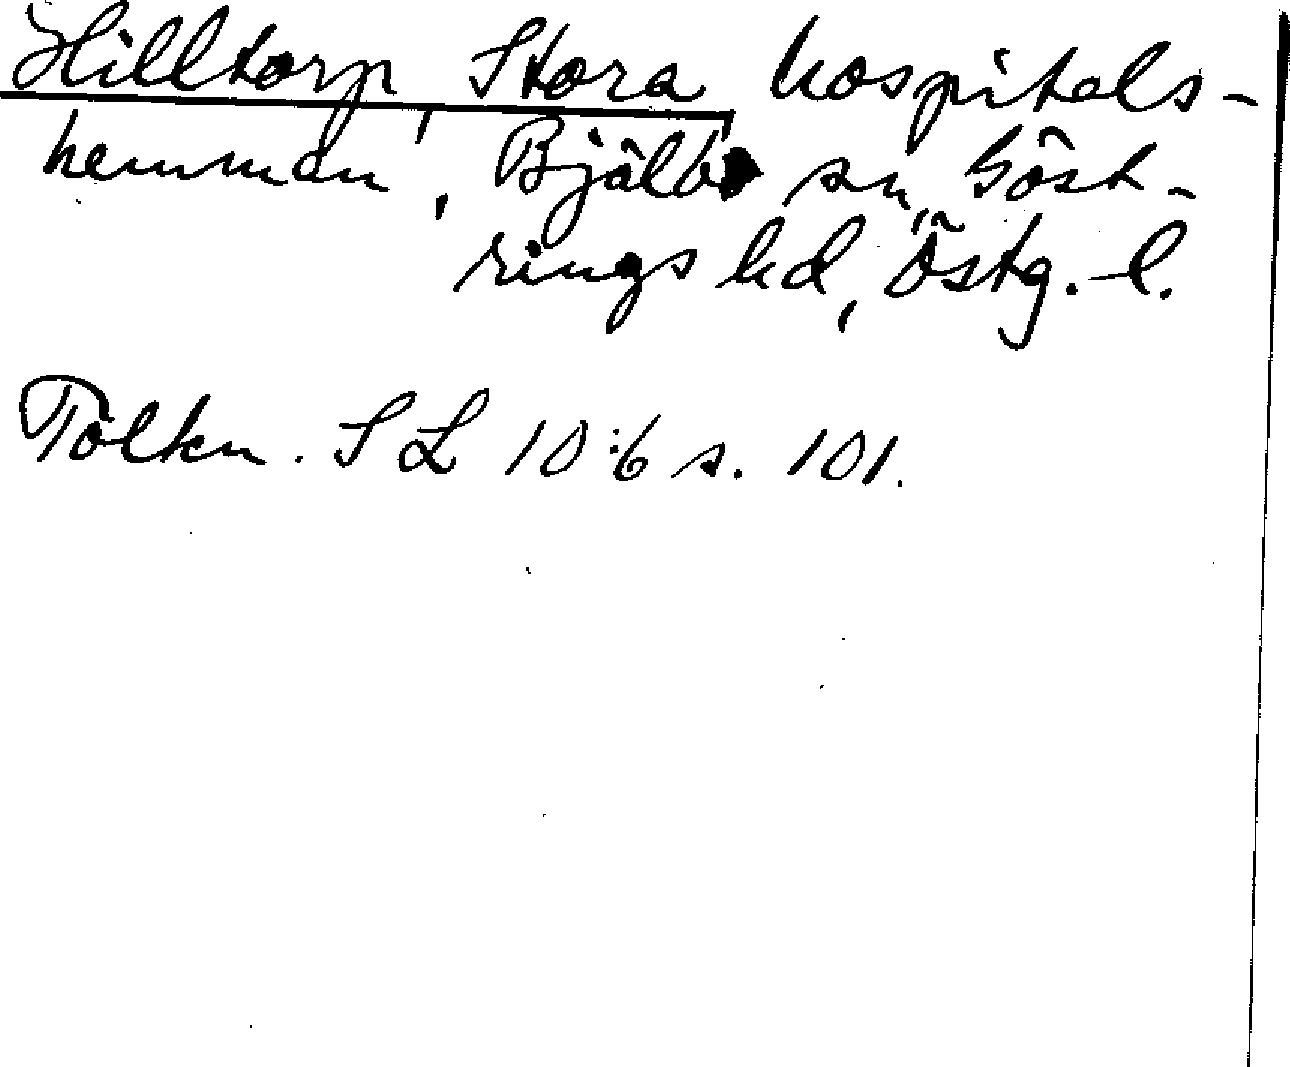 Hilltorp, Stora, hospitals-
hemman, Bjälbo sn, Göst-
rings hd, Östg. l.
Tolkn. SL 10:6 s. 101.